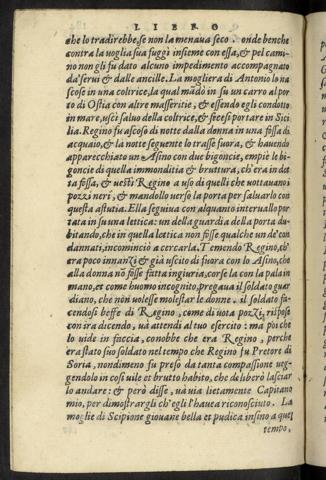 LIBRO
che lo tradirebbe, se non la menaua seco. onde benche
contra la voglia sua fuggì insieme con essa, & pel cami
no non gli fu dato alcuno impedimento accompagnato
da' serui & dalle ancille. La mogliera di Antonio lo na
scose in una coltrice, la qual mãdò in su un carro al por
to di Ostia con altre masseritie, & essendo egli condotto
in mare, uscì saluo della coltrice, & fecesi portare in Sici
lia. Regino fu ascoso di notte dalla donna in una fossa di
acquaio, & la notte seguente lo trasse fuora, & hauendo
apparecchiato un Asino con due bigoncie, empiè le bi
goncie di quella immonditia & bruttura, ch'era in det
ta fossa, & uestì Regino a uso di quelli che uottauano i
pozzi neri, & mandollo verso la porta per saluarlo con
questa astutia. Ella seguiua con alquanto interuallo por
tata in su una lettica: un della guardia della porta du-
bitando, che in quella lottica non fosse qualche un de' con
dannati, incominciò a cercarla. Temendo Regino, ch'
era poco innanzi & già uscito di fuora con lo Asino, che
alla donna nõ fosse fatta ingiuria, corse là con la pala in
mano, et come huomo incognito, pregaua il soldato guar
diano, che non uolesse molestar le donne. il soldato fa-
cendosi beffe di Regino, come di uota pozzi, rispose
con ira dicendo, uà attendi al tuo esercito: ma poi che
lo uide in faccia, conobbe che era Regino, perche
era stato suo soldato nel tempo che Regino fu Pretore di
Soria, nondimeno fu preso da tanta compassione ueg-
gendolo in così uile et brutto habito, che deliberò lasciar
lo andare: & però disse, uà uia lietamente Capitano
mio, per dimostrargli ch'egli l'hauea riconosciuto. La
moglie di Scipione giouane bella et pudica insino a quel
tempo,